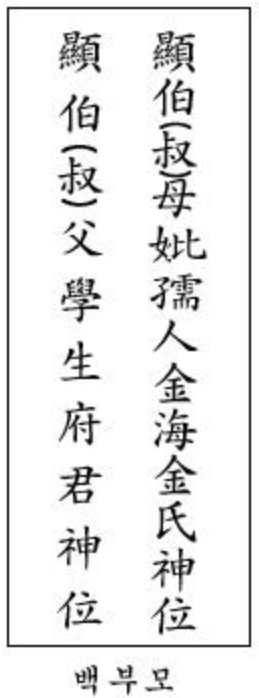 顯伯(叔)母妣孺人金海金氏神位
顯伯(叔)父學生府君神位
백부모